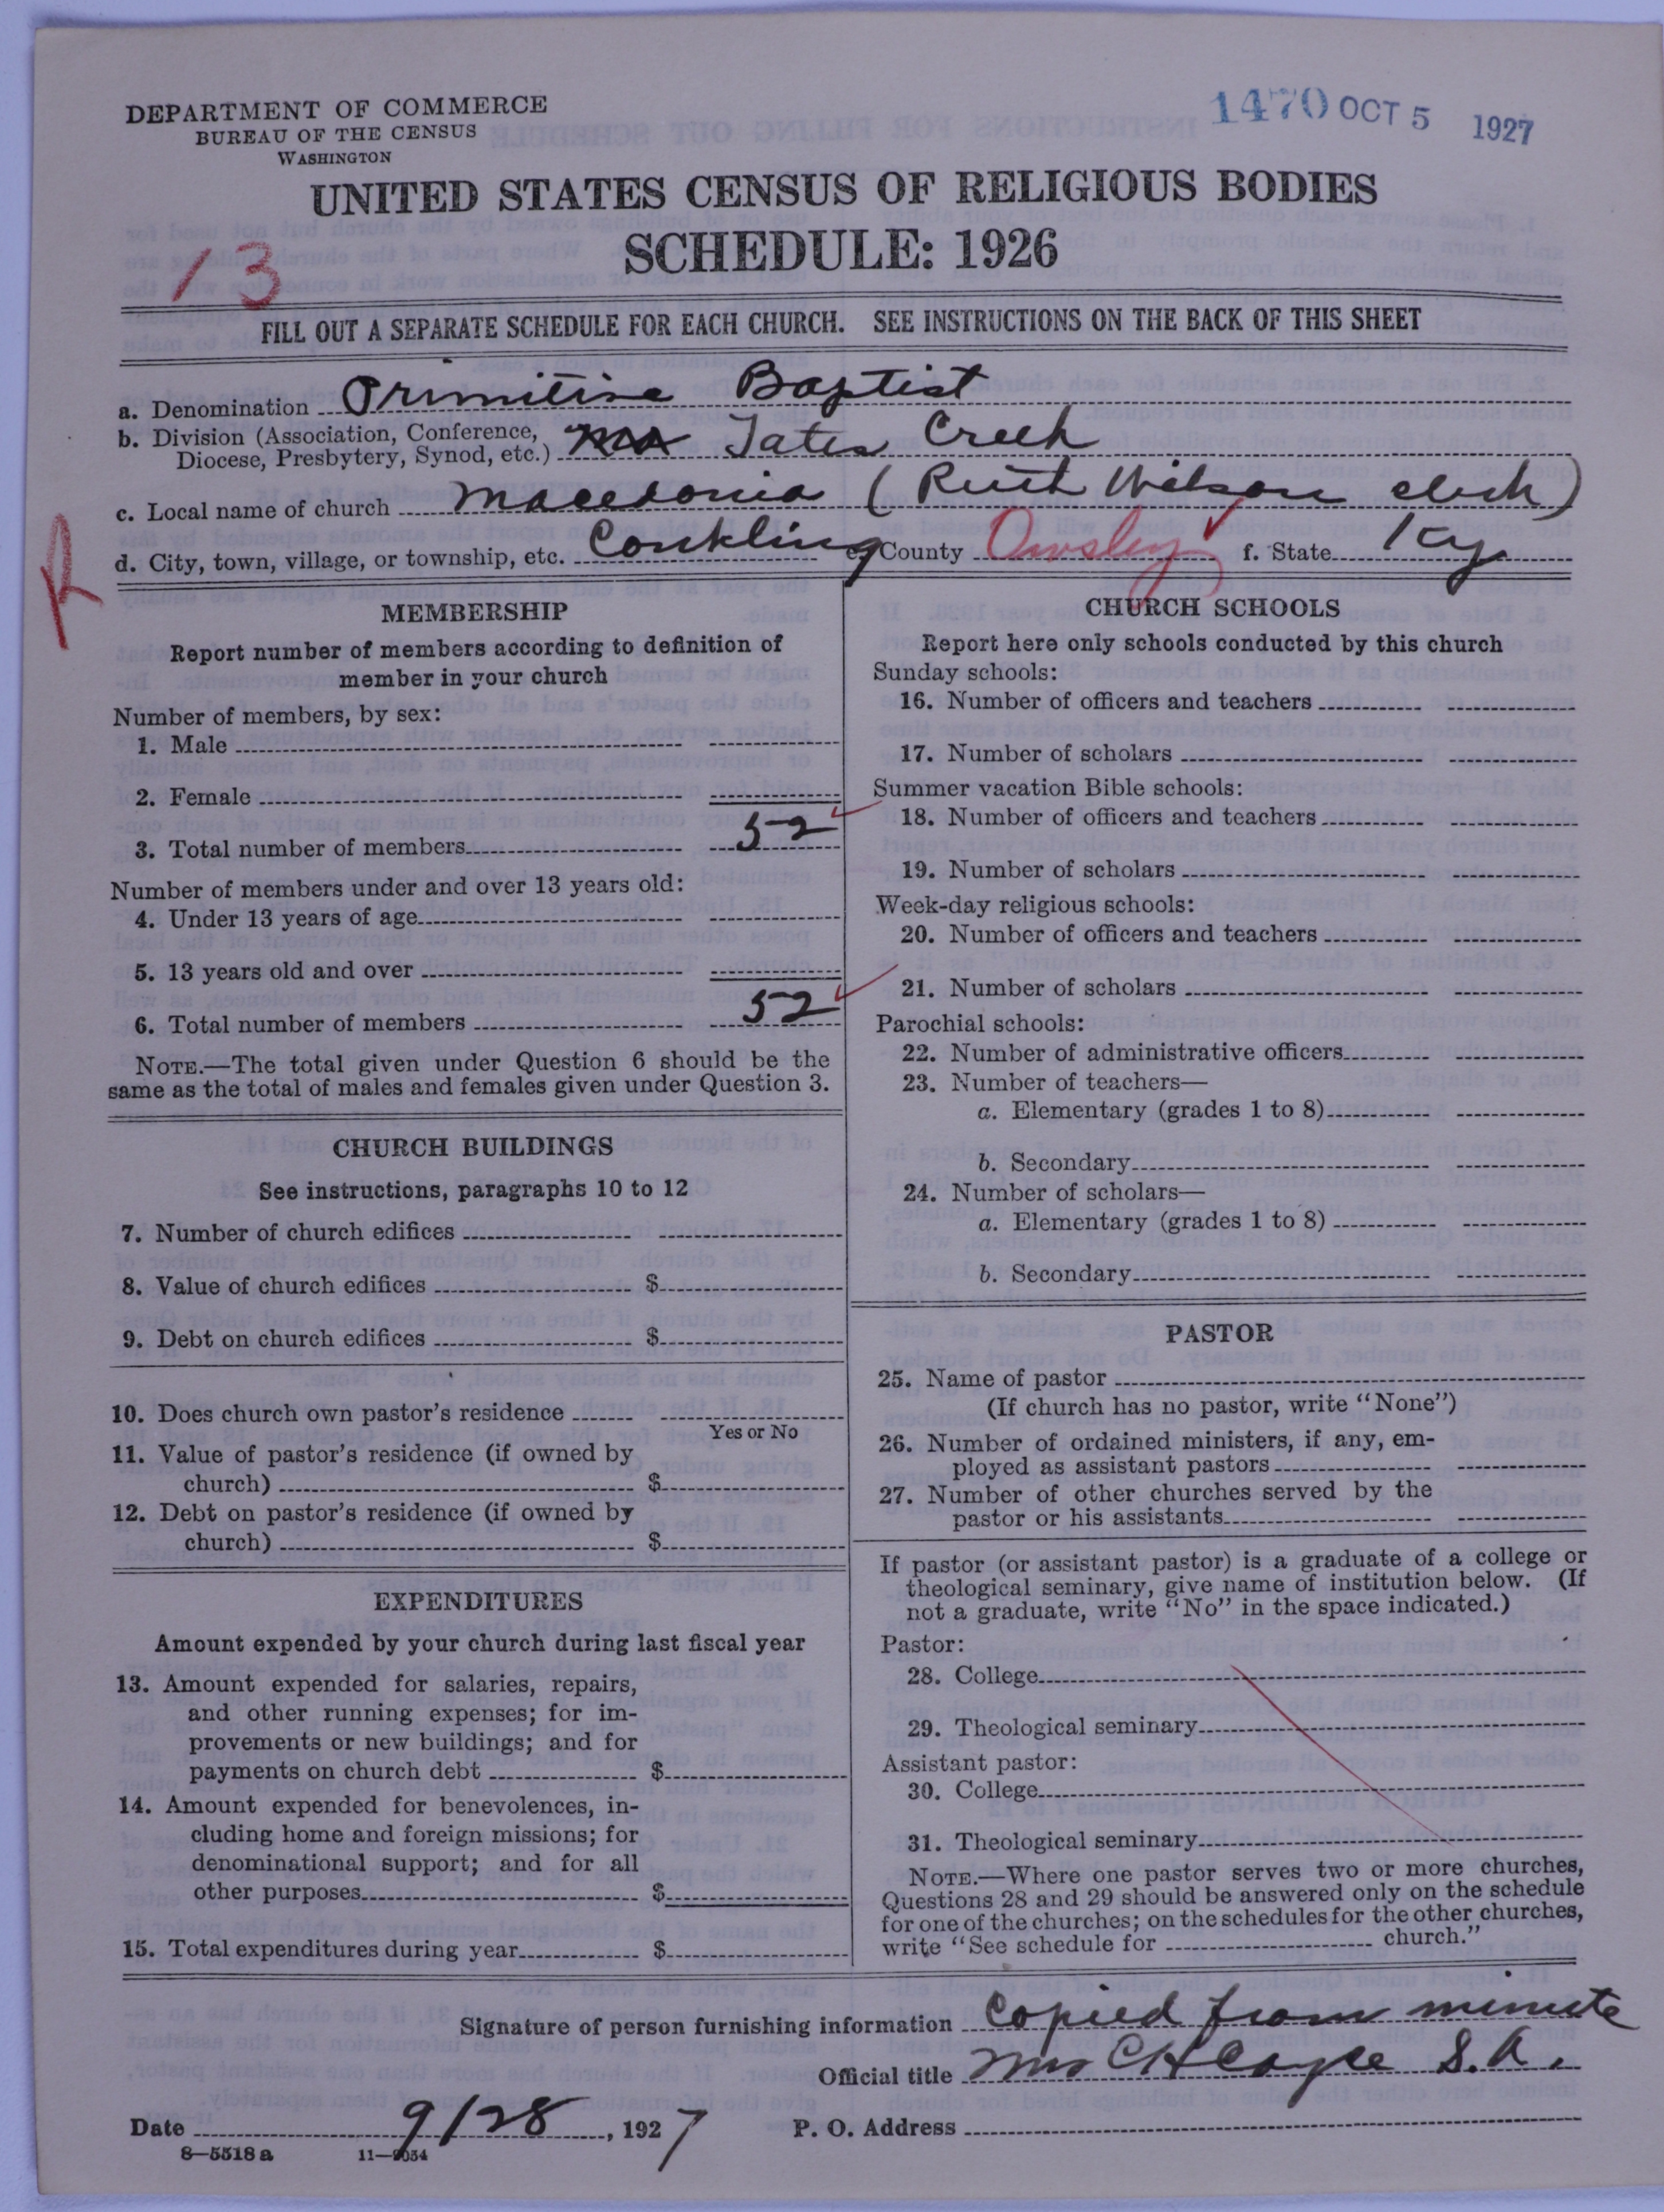 DEPARTMENT OF COMMERCE
BUREAU OF THE CENSUS
WASHINGTON
1470 OCT 5 1927
UNITED STATES CENSUS OF RELIGIOUS BODIES
SCHEDULE: 1926
13
FILL OUT A SEPARATE SCHEDULE FOR EACH CHURCH. SEE INSTRUCTIONS ON THE BACK OF THIS SHEET
a. Denomination Primitive Baptist
b. Division (Association, Conference, Diocese, Presbytery, Synod, etc.) Tates Creek
c. Local name of church Macedonia (Ruth Wilson clerk)
d. City, town, village, or township, etc. Conkling e. County Owsley f. State Ky
R
MEMBERSHIP
Report number of members according to definition of
member in your church
Number of members, by sex:
1. Male
2. Female
3. Total number of members 52
Number of members under and over 13 years old:
4. Under 13 years of age
5. 13 years old and over
6. Total number of members 52
NOTE.—The total given under Question 6 should be the
same as the total of males and females given under Question 3.
CHURCH BUILDINGS
See instructions, paragraphs 10 to 12
7. Number of church edifices
8. Value of church edifices $
9. Debt on church edifices $
10. Does church own pastor's residence
Yes or No
11. Value of pastor's residence (if owned by
church) $
12. Debt on pastor's residence (if owned by
church) $
EXPENDITURES
Amount expended by your church during last fiscal year
13. Amount expended for salaries, repairs,
and other running expenses; for im-
provements or new buildings; and for
payments on church debt $
14. Amount expended for benevolences, in-
cluding home and foreign missions; for
denominational support; and for all
other purposes $
15. Total expenditures during year $
CHURCH SCHOOLS
Report here only schools conducted by this church
Sunday schools:
16. Number of officers and teachers
17. Number of scholars
Summer vacation Bible schools:
18. Number of officers and teachers
19. Number of scholars
Week-day religious schools:
20. Number of officers and teachers
21. Number of scholars
Parochial schools:
22. Number of administrative officers
23. Number of teachers—
a. Elementary (grades 1 to 8)
b. Secondary
24. Number of scholars—
a. Elementary (grades 1 to 8)
b. Secondary
PASTOR
25. Name of pastor
(If church has no pastor, write "None")
26. Number of ordained ministers, if any, em-
ployed as assistant pastors
27. Number of other churches served by the
pastor or his assistants
If pastor (or assistant pastor) is a graduate of a college or
theological seminary, give name of institution below. (If
not a graduate, write "No" in the space indicated.)
Pastor:
28. College
29. Theological seminary
Assistant pastor:
30. College
31. Theological seminary
NOTE.—Where one pastor serves two or more churches,
Questions 28 and 29 should be answered only on the schedule
for one of the churches; on the schedules for the other churches,
write "See schedule for church."
Signature of person furnishing information Copied from minute
Official title Mrs C H Cayce S. A.
Date 9/28, 1927 P. O. Address
8—5518 a 11—9054